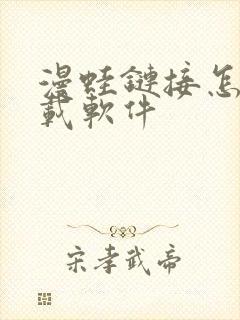 漫蛙鏈接怎
載軟件
宋孝武帝